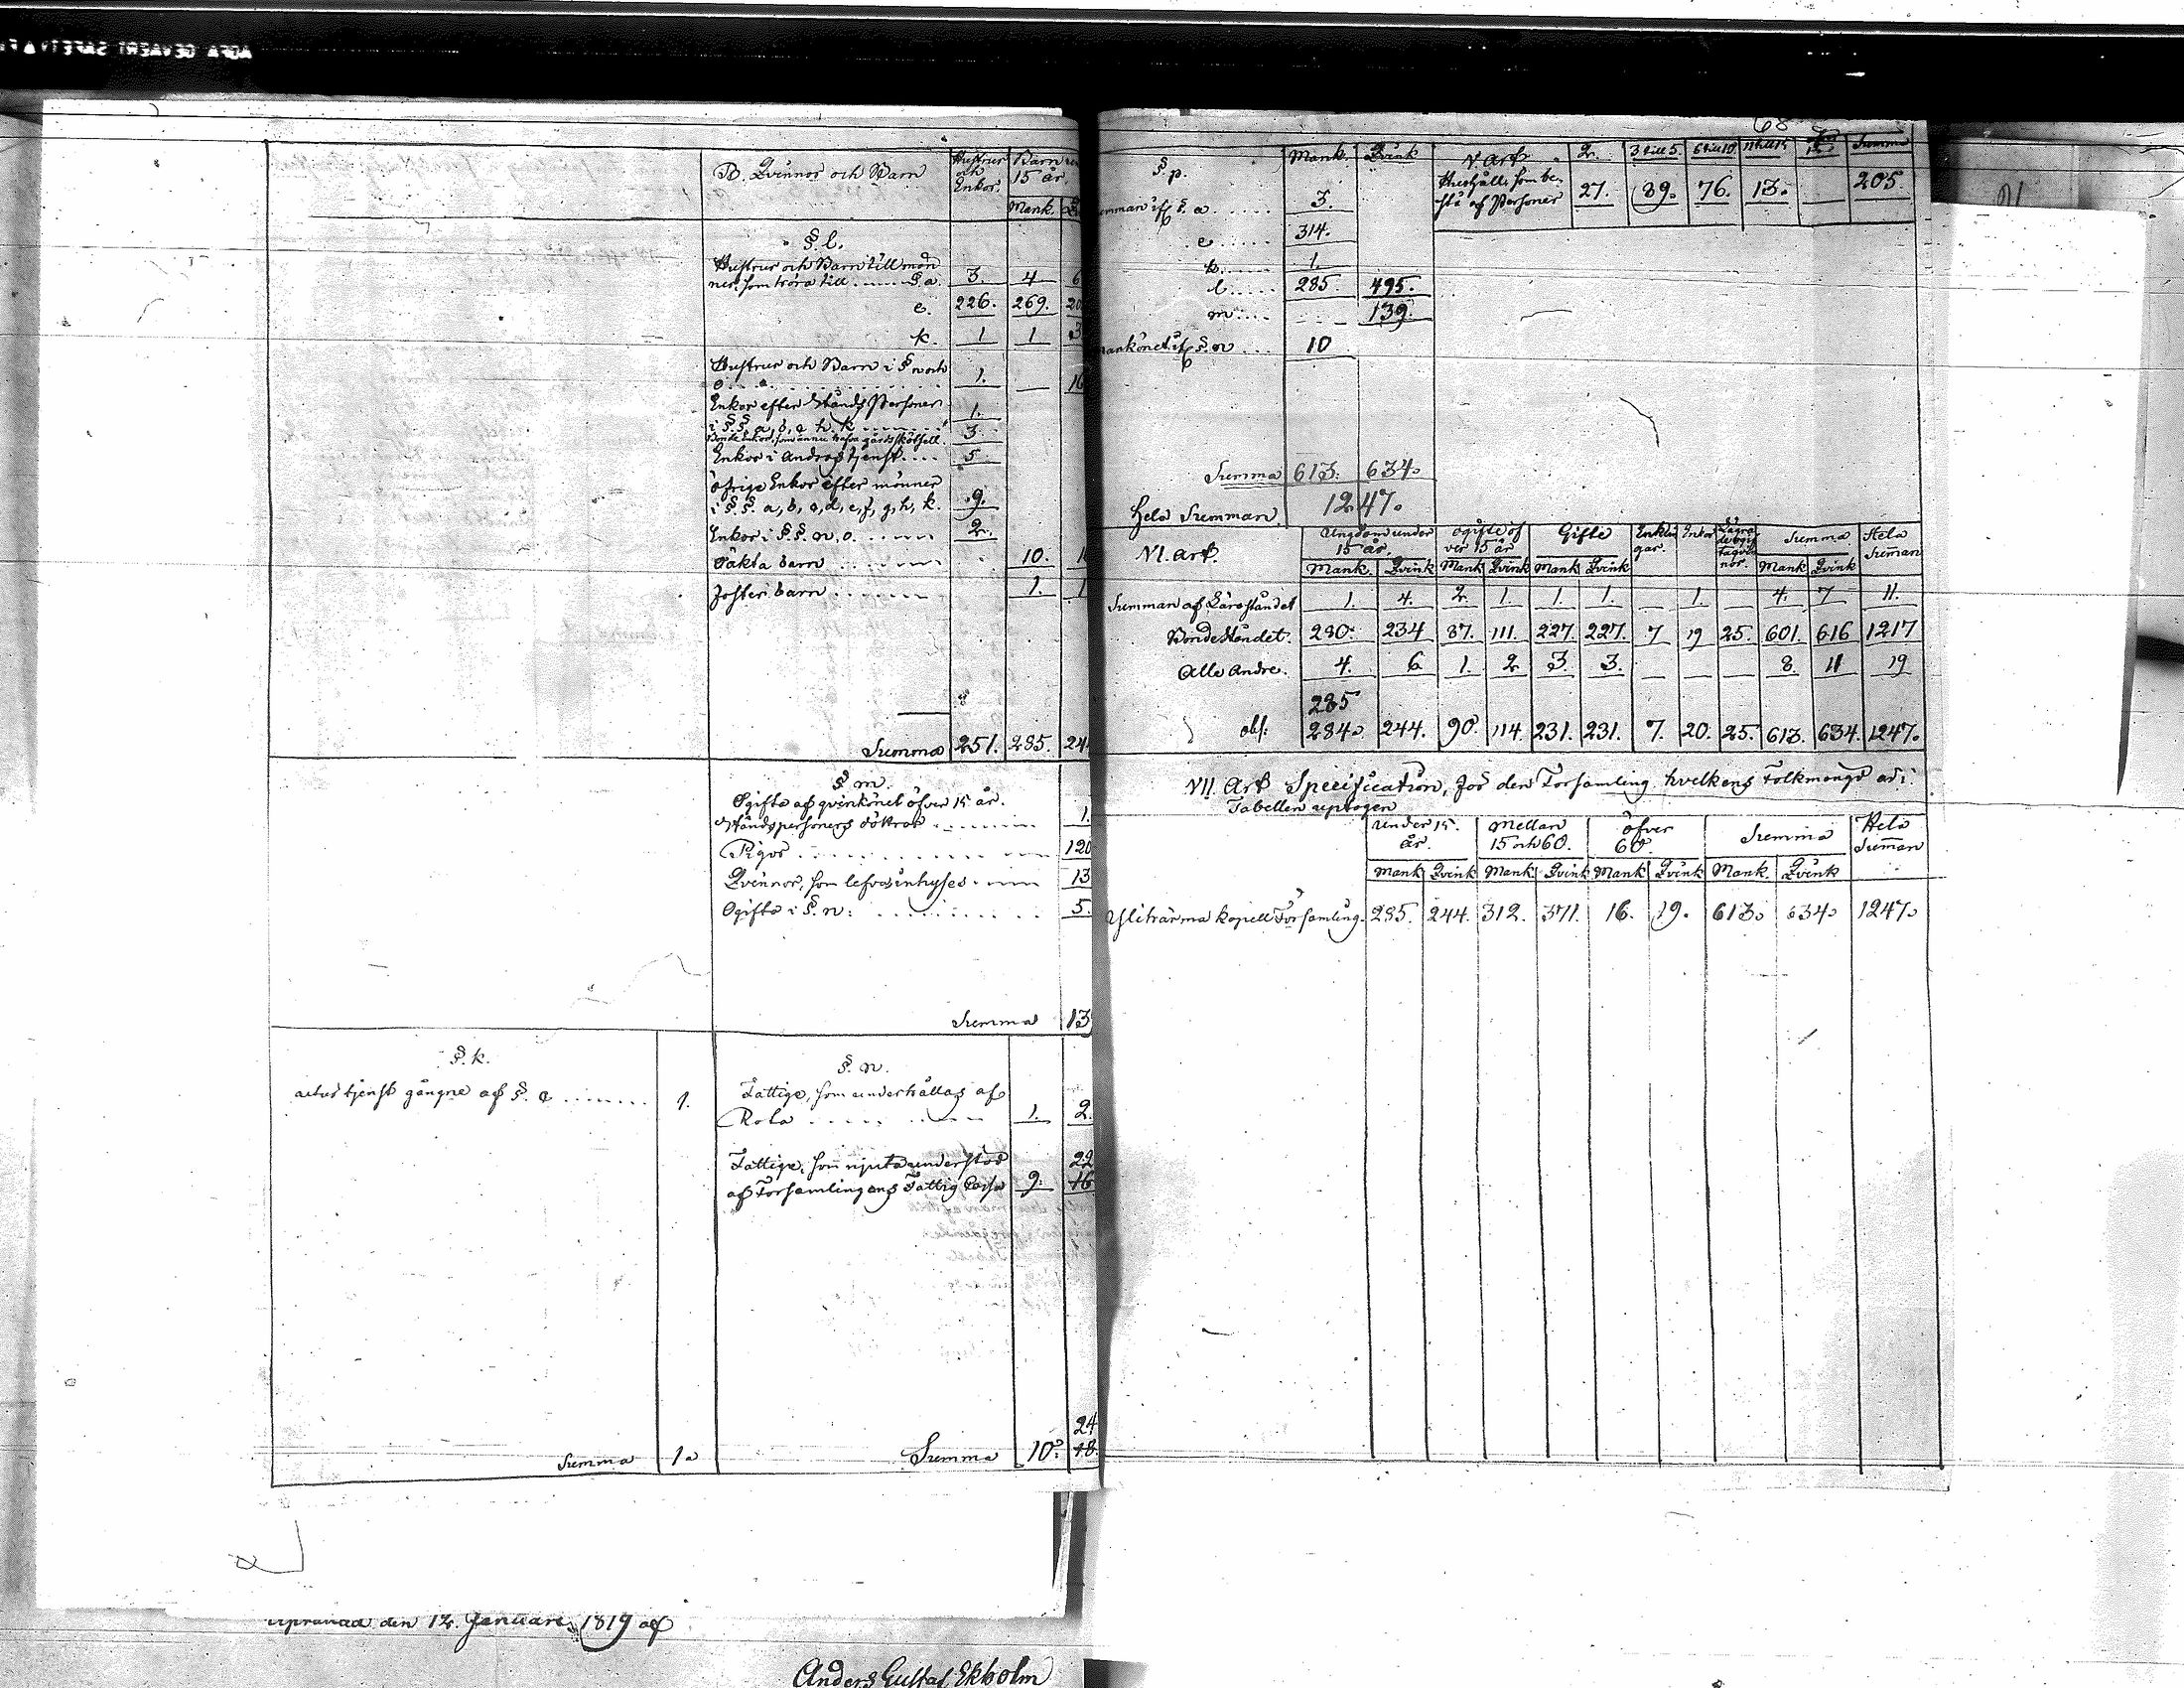 B. Qvinnor och Barn
Hustrur och Enkor.
Barn
15 år.
Mank.
§. l.
Hustrur och Barn till män
ner, som höra till ...... §. a. 3. 4 6
e. 226. 269. 20
k. 1 1 3
Hustrur och Barn i §. n och
o. 1. — 16
Enkor efter Stånds Personer
i §.§. a, b, e, h, k ....... 1.
Bonde Enkor, som ännu hafva gårds skötsell. 3.
Enkor i Andras tjenst.... 5
öfrige Enkor efter männer
i §.§. a, b, c, d, e, f, g, h, k. 9.
Enkor i §.§. n, o. ...... 2.
Oäkta barn ...... 10. 1
Foster barn ....... 1. 1
Summa 251. 285. 244
§ m.
Ogifta af qvinkönet öfver 15 år.
Ståndspersoners döttrar ........ 1.
Pigor ........ 120
Qvinnor, som lefva inhyses. 13
Ogifta i §. n: ........ 5.
Summa 13
§. k.
tjenst gångne af §. a ....... 1.
Summa 1
§. n.
Fattige, som underhållas af
Rota ........ 1. 2.
Fattige, som njuta understöd 22
af Församlingens Fattig Cassa 9. 16
24
Summa 10. 18.
den 12. Januari 1819 af
Anders Gustaf Ekholm
68
§. p. Mank. Qvink
§. a ..... 3.
e ..... 314.
k ..... 1.
l ..... 285. 495.
m .... 139.
mankönet §. n ... 10
Summa 613. 634.
Hela Summan 1247.
V Art. 2. 3 till 5 6 till 10 11 till 15 Summa
Hushåll, som be-
stå af Personer 27. 89. 76. 13. — 205.
VI. Art. Ungdom under 15 år. ogifte öf ver 15 år Gifte Enklin gar. Enkor Summa Hela Suman
Mank. Qvink Mank Qvink Mank Qvink Mank Qvink
Summan af Läroståndet 1. 4. 2. 1. 1. 1. — 1. — 4. 7 11.
Bonde Ståndet. 280. 234 87. 111. 227. 227. 7 19 25. 601. 616 1217
Alle Andre. 4. 6 1. 2 3. 3. — — — 8. 11 19
285
obs: 284. 244. 90. 114. 231. 231. 7. 20. 25. 613. 634. 1247.
VII. Art Specification, för den Församling hvilkens Folkmängd är i
Tabellen uptagen
under 15. år. Mellan 15 och 60. öfver 60. Summa Hela Suman
Mank Qvink Mank. Qvink Mank Qvink Mank. Qvink
Ylihärma kapell Församling. 285. 244. 312. 371. 16. 19. 613. 634. 1247.